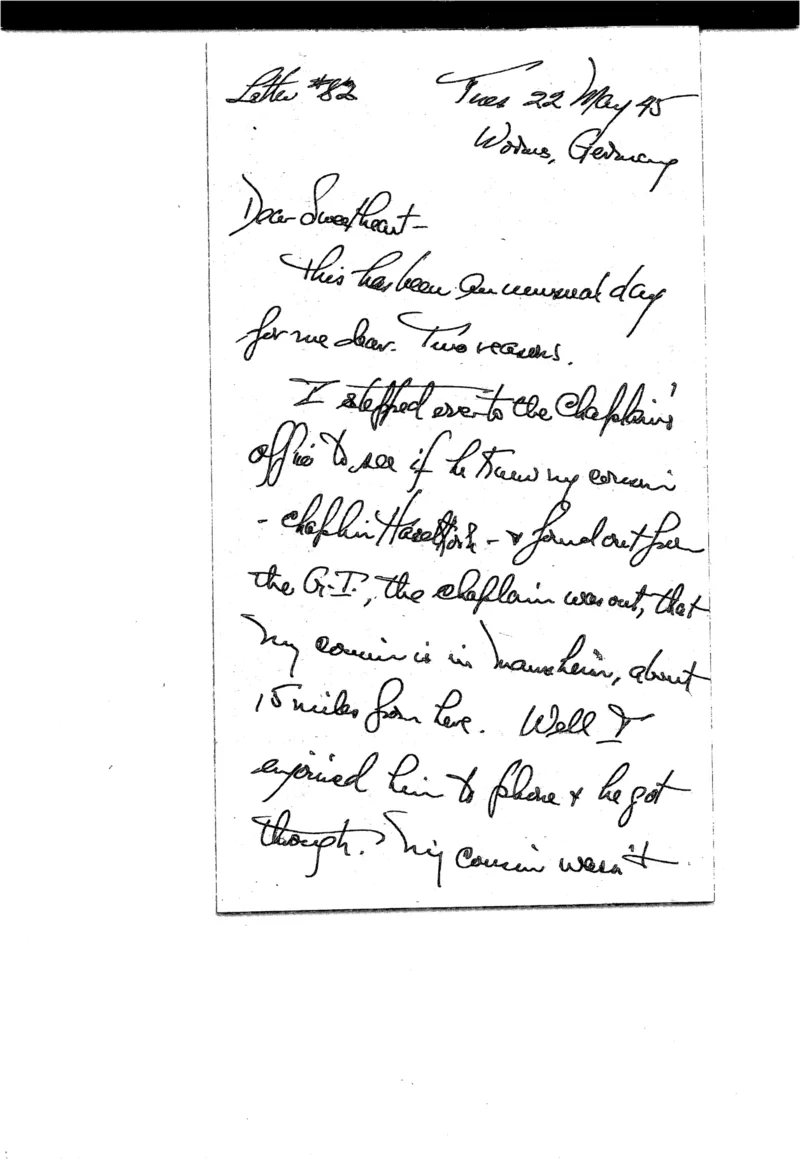 Letter #82 Tues 22 May 45
Worms, Germany
Dear Sweetheart-
This has been an unusual day
for me dear. Two reasons.
I stepped over to the Chaplain's
office to see if he knew my cousin
- chaplin - & found out from
the G.I., the chaplain was out, that
my cousin is in Mannheim, about
15 miles from here. Well I
enjoined him to phone & he got
though. My cousin wasn't